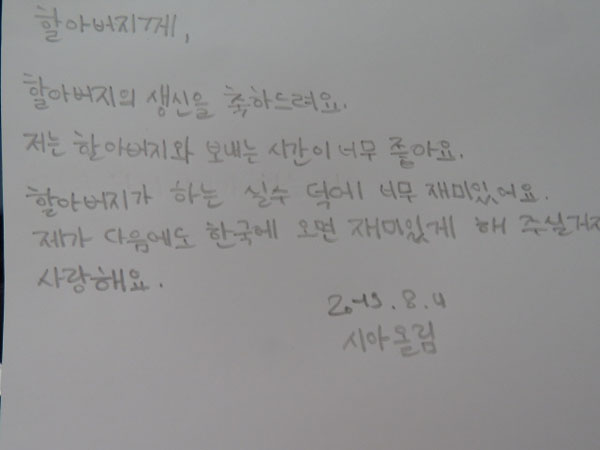 할아버지께,
할아버지의 생신을 축하드려요.
저는 할아버지와 보내는 시간이 너무 좋아요.
할아버지가 하는 실수 덕에 너무 재미있어요.
제가 다음에도 한국에 오면 재미있게 해 주실거
사랑해요.
8.4
시아올림